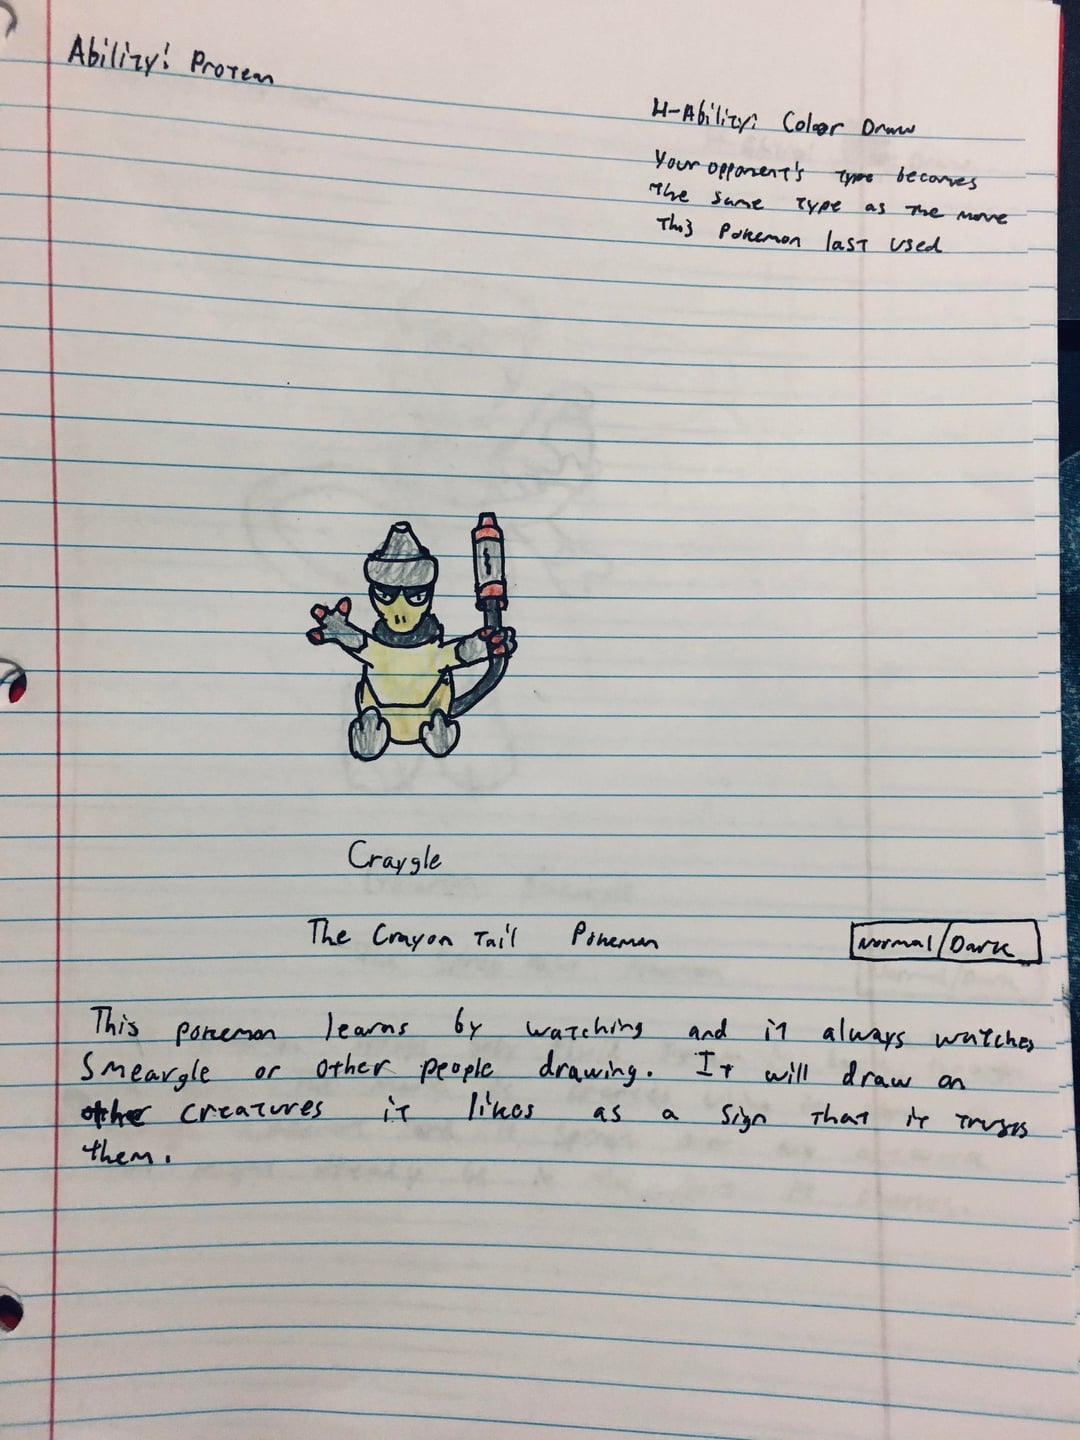 Ability: Protean
H-Ability: Color Draw
Your opponent's type becomes
the same type as the move
this Pokemon last used
Craygle
The Crayon Tail Pokemon
Normal/Dark
This pokemon learns by watching and it always watches
Smeargle or other people drawing. It will draw on
creatures it likes as a sign that it trusts
them.